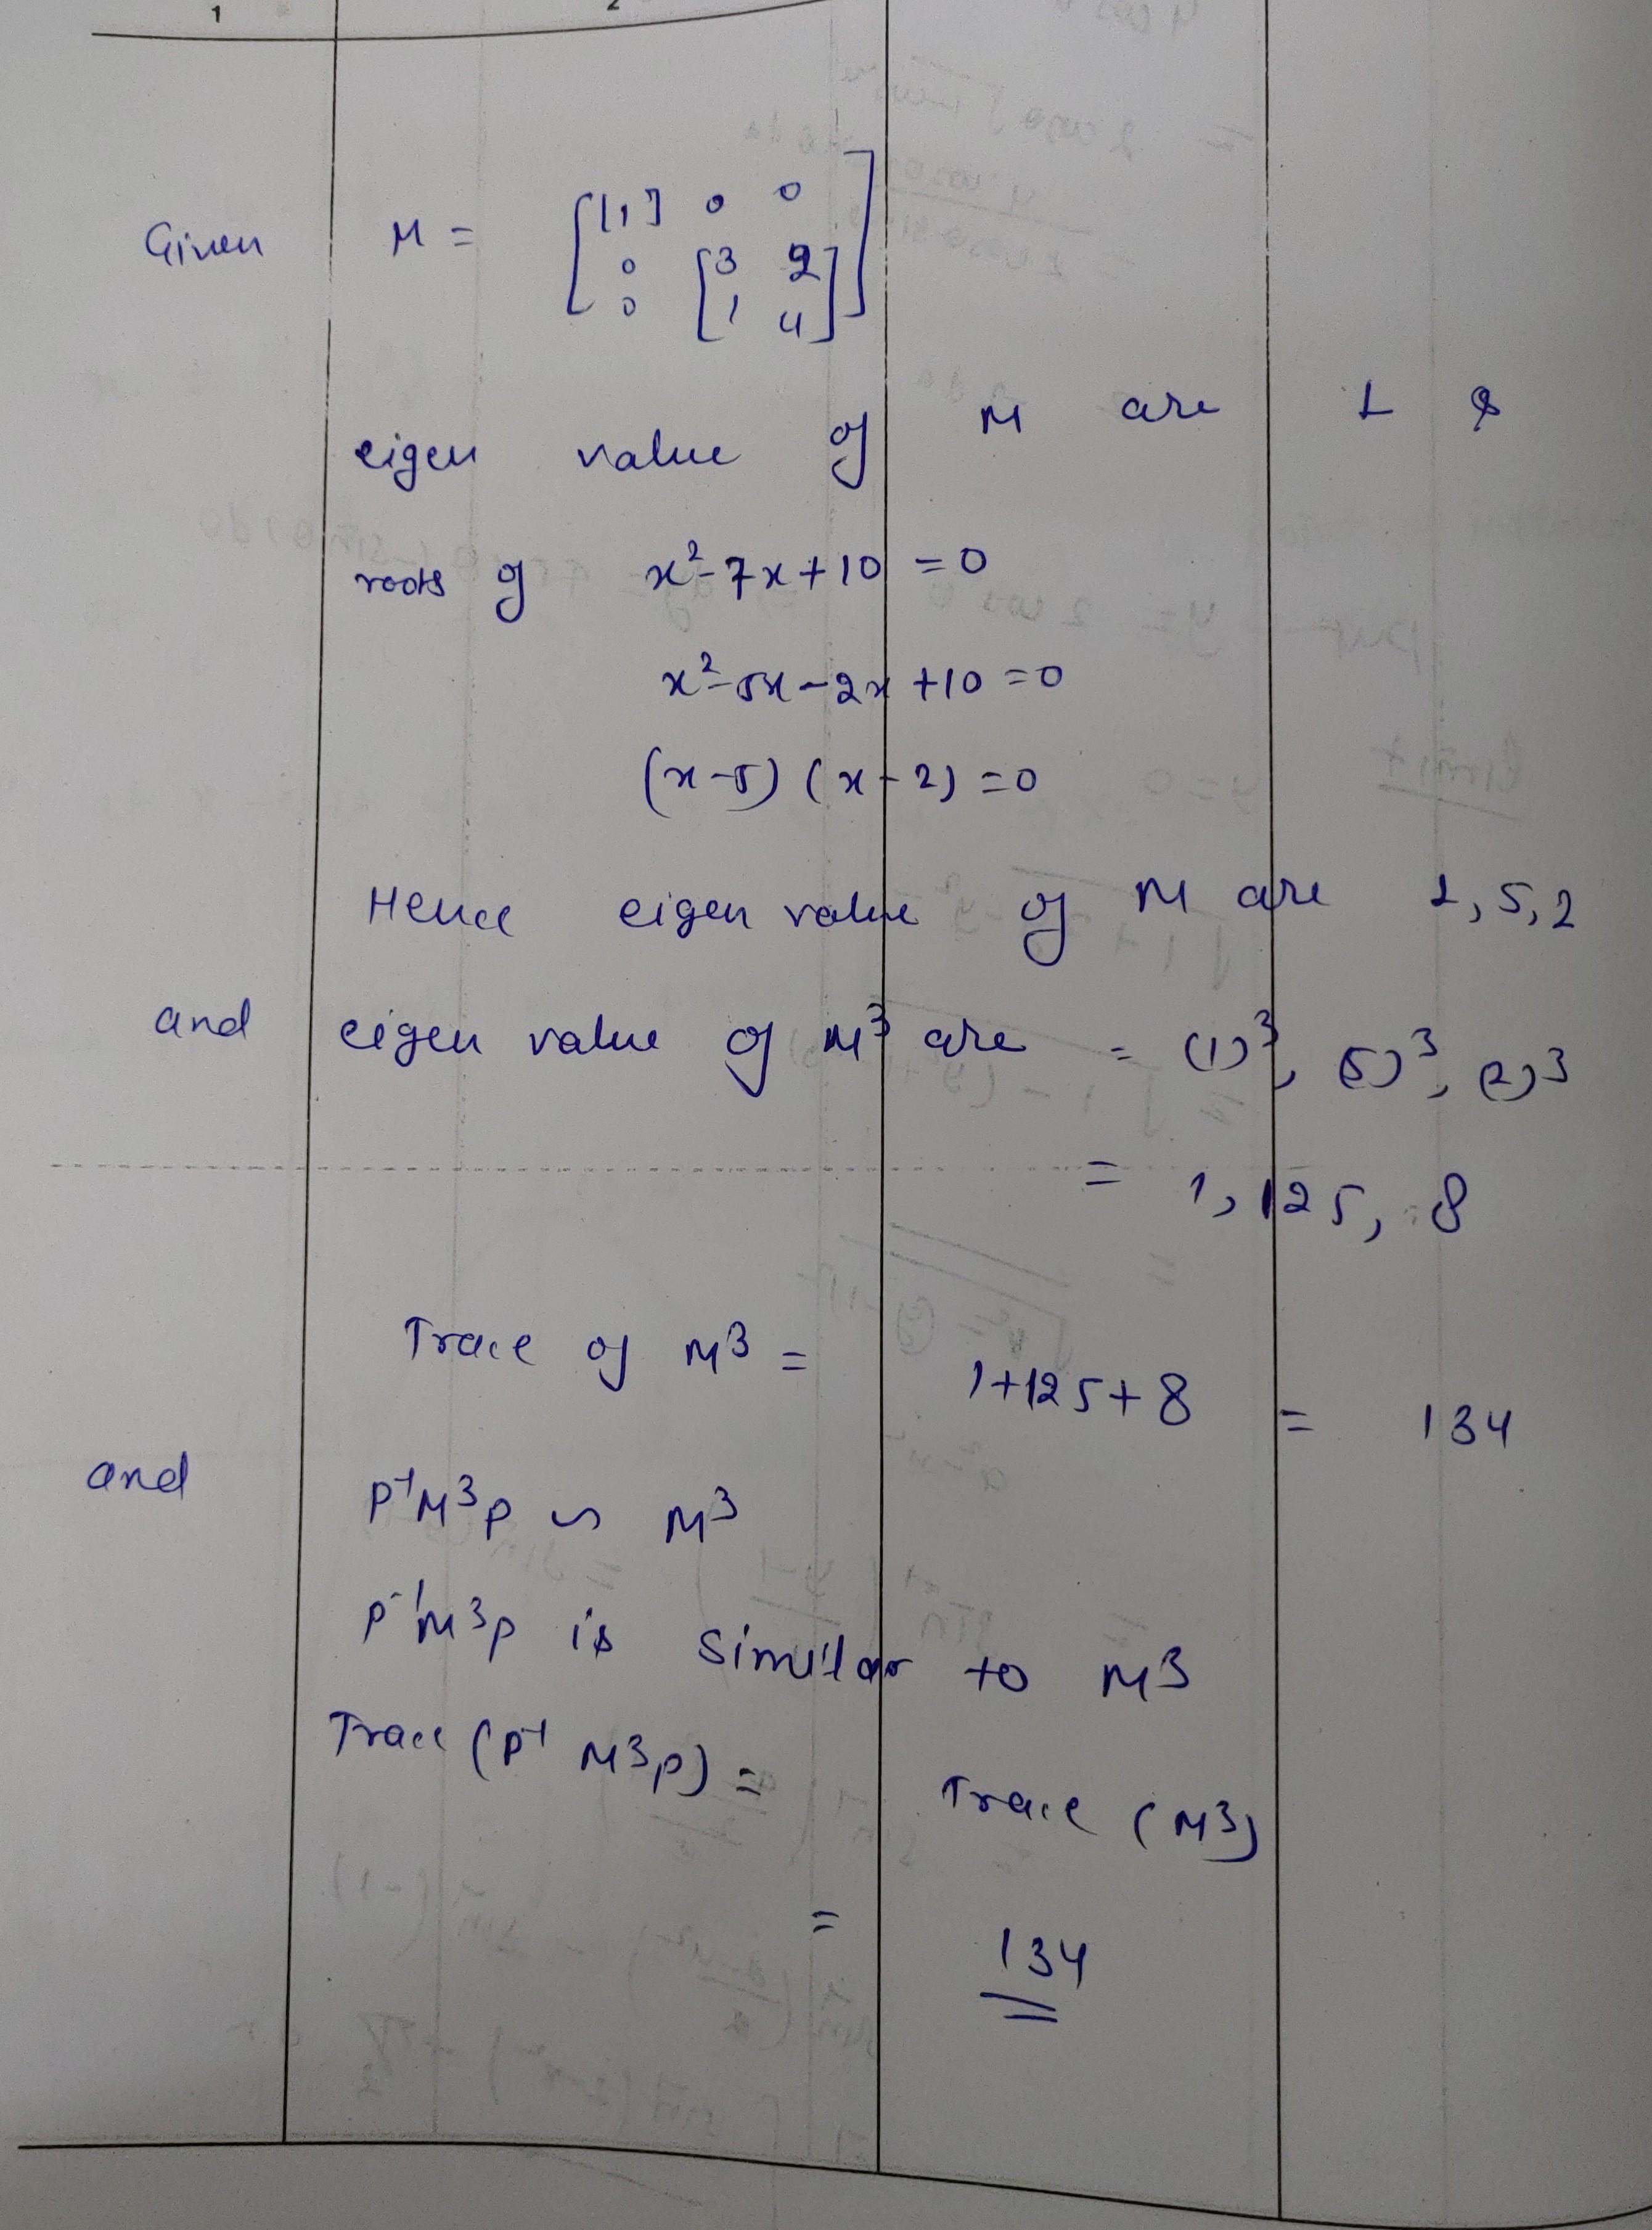 1 2
Given M = [[1] 0 0
0 [3 2
0 1 4]]
eigen value of M are 1 &
roots of x²-7x+10 = 0
x²-5x-2x+10=0
(x-5) (x-2) =0
Hence eigen value of M are 1, 5, 2
and eigen value of M³ are = (1)³, (5)³, (2)³
= 1, 125, 8
Trace of M³ = 1+125+8 = 134
and P⁻¹M³P ∽ M³
P⁻¹M³P is similar to M³
Trace (P⁻¹ M³P) = Trace (M³)
= 134